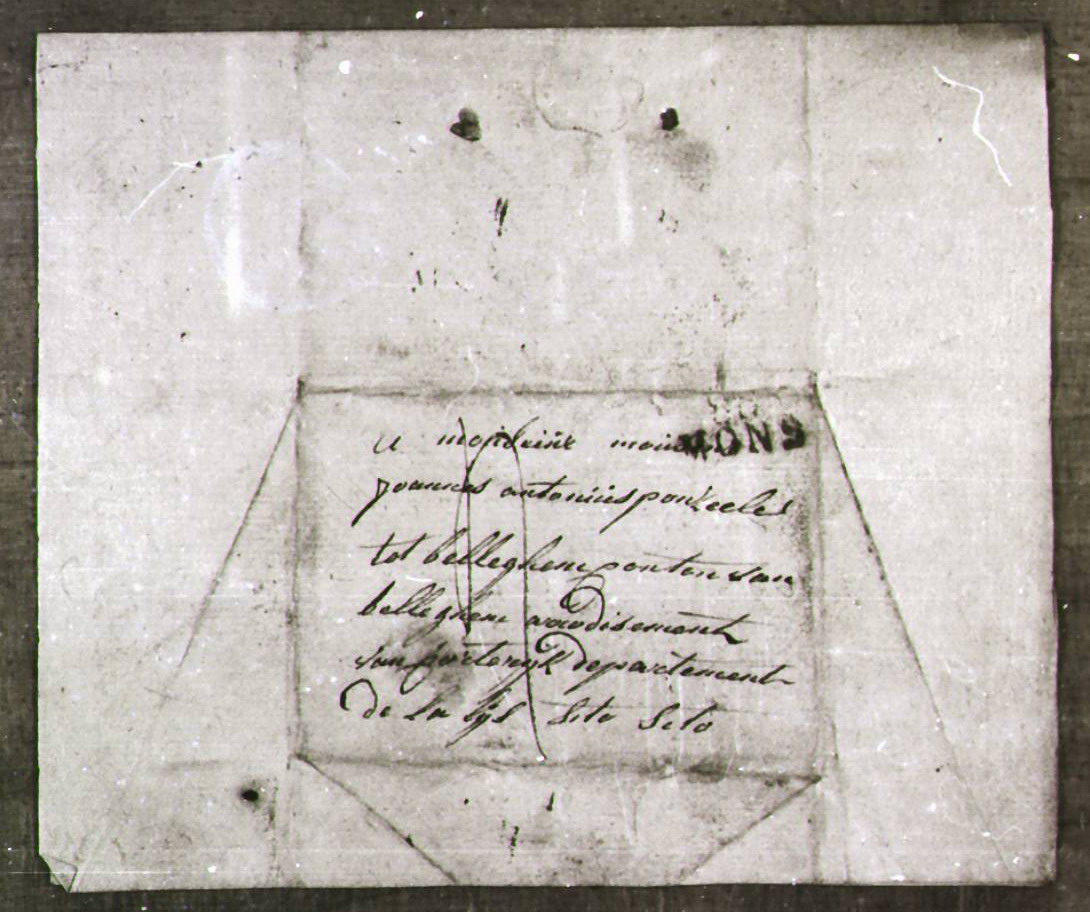 a monsieur
MONS
joannes antonius ponseeles
tot belleghem canton van
belleghem arrodisement
van cortryk departement
de la lijs sito sito